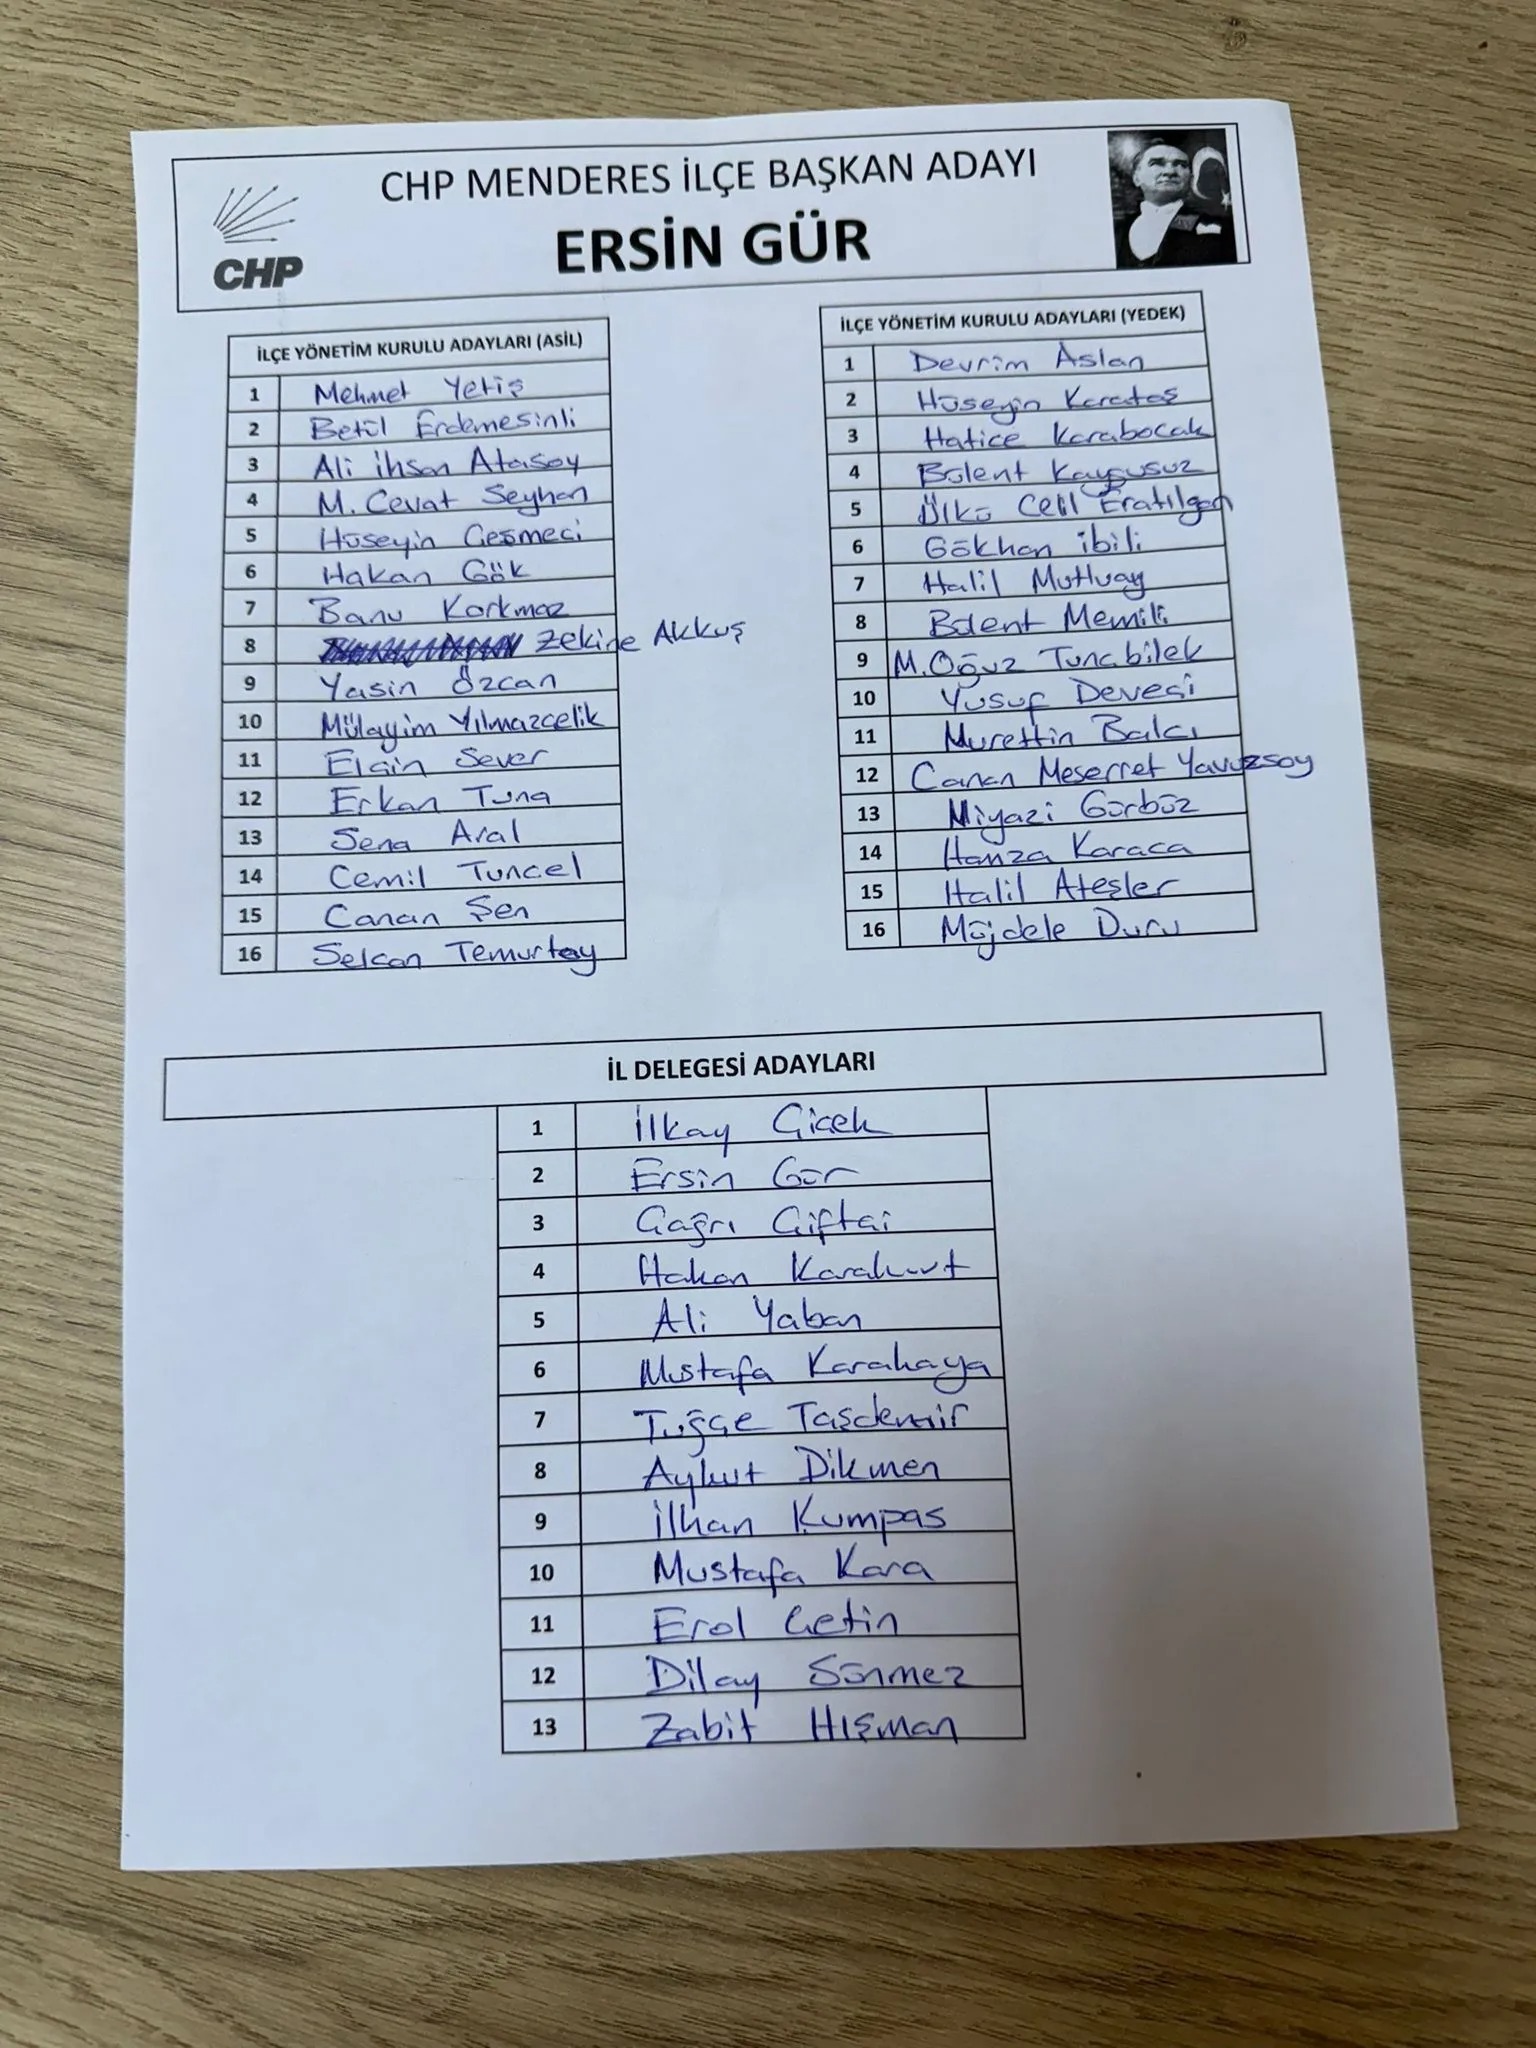 CHP
CHP MENDERES İLÇE BAŞKAN ADAYI
ERSİN GÜR
İLÇE YÖNETİM KURULU ADAYLARI (ASİL)
1 Mehmet Yetiş
2 Betül Erdemesinli
3 Ali ihsan Atasoy
4 M. Cevat Seyhan
5 Hüseyin Çeşmeci
6 Hakan Gök
7 Banu Korkmaz
8 Zekine Akkuş
9 Yasin Özcan
10 Mülayim Yılmazcelik
11 Elçin Sever
12 Erkan Tuna
13 Sena Aral
14 Cemil Tuncel
15 Canan Şen
16 Selcan Temurtay
İLÇE YÖNETİM KURULU ADAYLARI (YEDEK)
1 Devrim Aslan
2 Hüseyin Karataş
3 Hatice Karabocak
4 Bülent Kaygusuz
5 Ülkü Celil Eratılgan
6 Gökhan ibili
7 Halil Mutluay
8 Bülent Memili
9 M. Oğuz Tunabilek
10 Yusuf Deveci
11 Nurettin Balcı
12 Canan Meserret Yavuzsoy
13 Niyazi Gürbüz
14 Hamza Karaca
15 Halil Ateşler
16 Müjdele Duru
İL DELEGESİ ADAYLARI
1 İlkay Çiçek
2 Ersin Gür
3 Çağrı Çiftçi
4 Hakan Karakurt
5 Ali Yaban
6 Mustafa Karakaya
7 Tuğçe Taşdemir
8 Aykut Dikmen
9 İlhan Kumpas
10 Mustafa Kara
11 Erol Çetin
12 Dilay Sönmez
13 Zabit Hışman